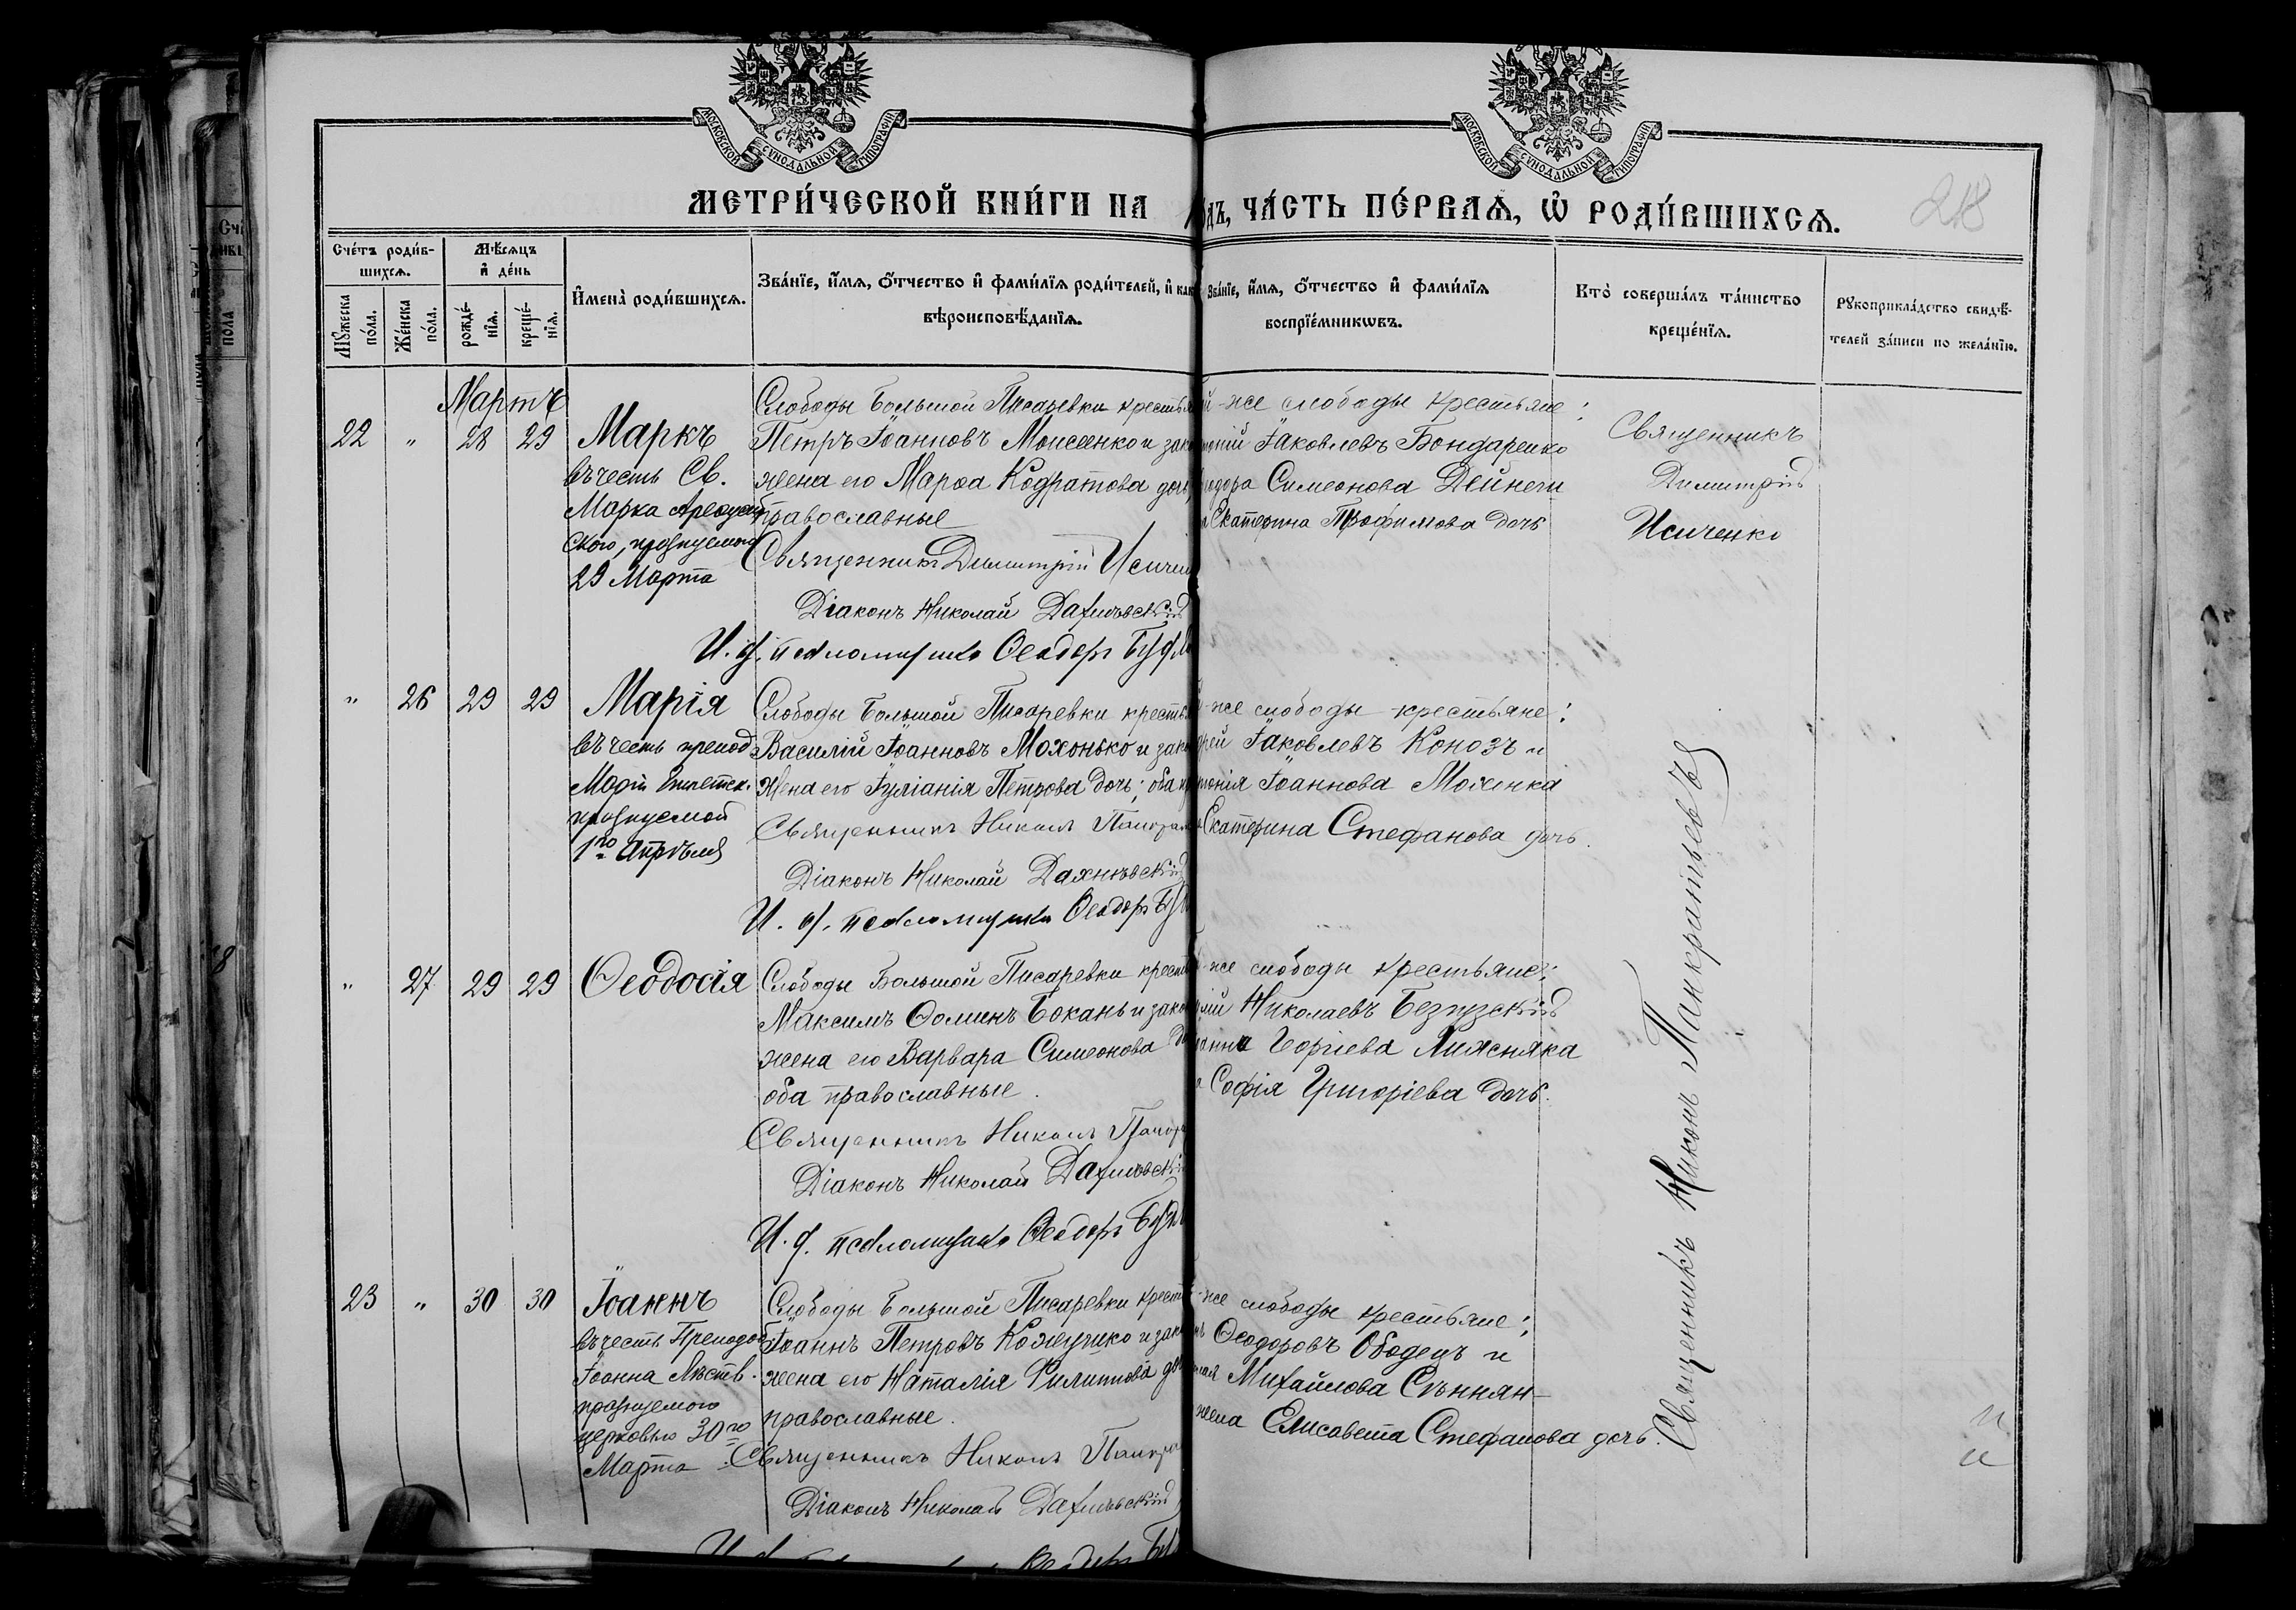 МОСКОВСКОЙ СУНОДАЛЬНОЙ ТИПОГРАФІИ
МОСКОВСКОЙ СУНОДАЛЬНОЙ ТИПОГРАФІИ
МЕТРИ́ЧЕСКОЙ КНИ́ГИ НА
ЧА́СТЬ ПЕ́РВАѦ, Ѡ РОДИ́ВШИХСѦ.
218
Сче́тъ роди́в-
шихсѧ.
Мѣсѧцъ
и де́нь
Мꙋжеска по́ла.
Же́нска по́ла.
рожде́-нїѧ.
креще́-нїѧ.
Имена̀ роди́вшихсѧ.
Зва́нїе, и́мѧ, о́тчество и фами́лїѧ роди́телей, и как
вѣроисповѣ́данїѧ.
Зва́нїе, и́мѧ, о́тчество и фами́лїѧ
воспрїе́мникѡвъ.
Кто̀ соверша́лъ та́инство
креще́нїѧ.
Рꙋкоприкла́дство свидѣ́-
телей за́писи по жела́нїю.
Мартъ
22 " 28 29
Маркъ
въ честь Св.
Марка
празнуемого
29 Марта
Слободы Большой Писаревки крестья
Петръ Іоанновъ Моисеенко и зако
жена его Марѳа Кодратова дочь,
православные
Священникъ Димитрій Исиче
Діаконъ Николай Дахнѣвскій
И. д. псаломщика Ѳеодоръ
й-же слободы крестьяне:
Іаковлевъ Бондаренко
Симеонова Дейнеги
Екатерина Трофимова дочь
Священникъ
Димитрій
Исиченко
" 26 29 29
Марія
въ честь препод.
Маріи Египетск.
празнуемой
1го Апрѣля
Слободы Большой Писаревки крестья
Василій Іоанновъ Мохонько и зако
жена его Іуліанія Петрова дочь; оба
Священникъ Никонъ Панкрат
Діаконъ Николай Дахнѣвскій
И. д. псаломщика Ѳеодоръ
же слободы крестьяне:
Іаковлевъ Конозъ и
Іоаннова Мохонка
Екатерина Стефанова дочь.
" 27 29 29
Ѳеодосія
Слободы Большой Писаревки крест
Максимъ Ѳоминъ Бокань и зако
жена его Варвара Симеонова
оба православные.
Священникъ Никонъ Панкр
Діаконъ Николай Дахнѣвскі
И. д. псаломщика Ѳеодоръ
же слободы крестьяне:
Николаевъ Безрузскій
Георгіева
Софія Григоріева дочь.
23 " 30 30
Іоаннъ
въ честь Преподоб.
Іоанна Лѣств.
празнуемого
церковью 30го
Марта
Слободы Большой Писаревки крест
Іоаннъ Петровъ Кожушко и зако
жена его Наталія Филиппова
православные.
Священникъ Никонъ Панкра
Діаконъ Николай Дахнѣвскій
же слободы крестьяне:
Ѳеодоровъ Ободецъ и
Михайлова
жена Елисавета Стефанова дочь.
Священникъ Никонъ Панкратьевъ